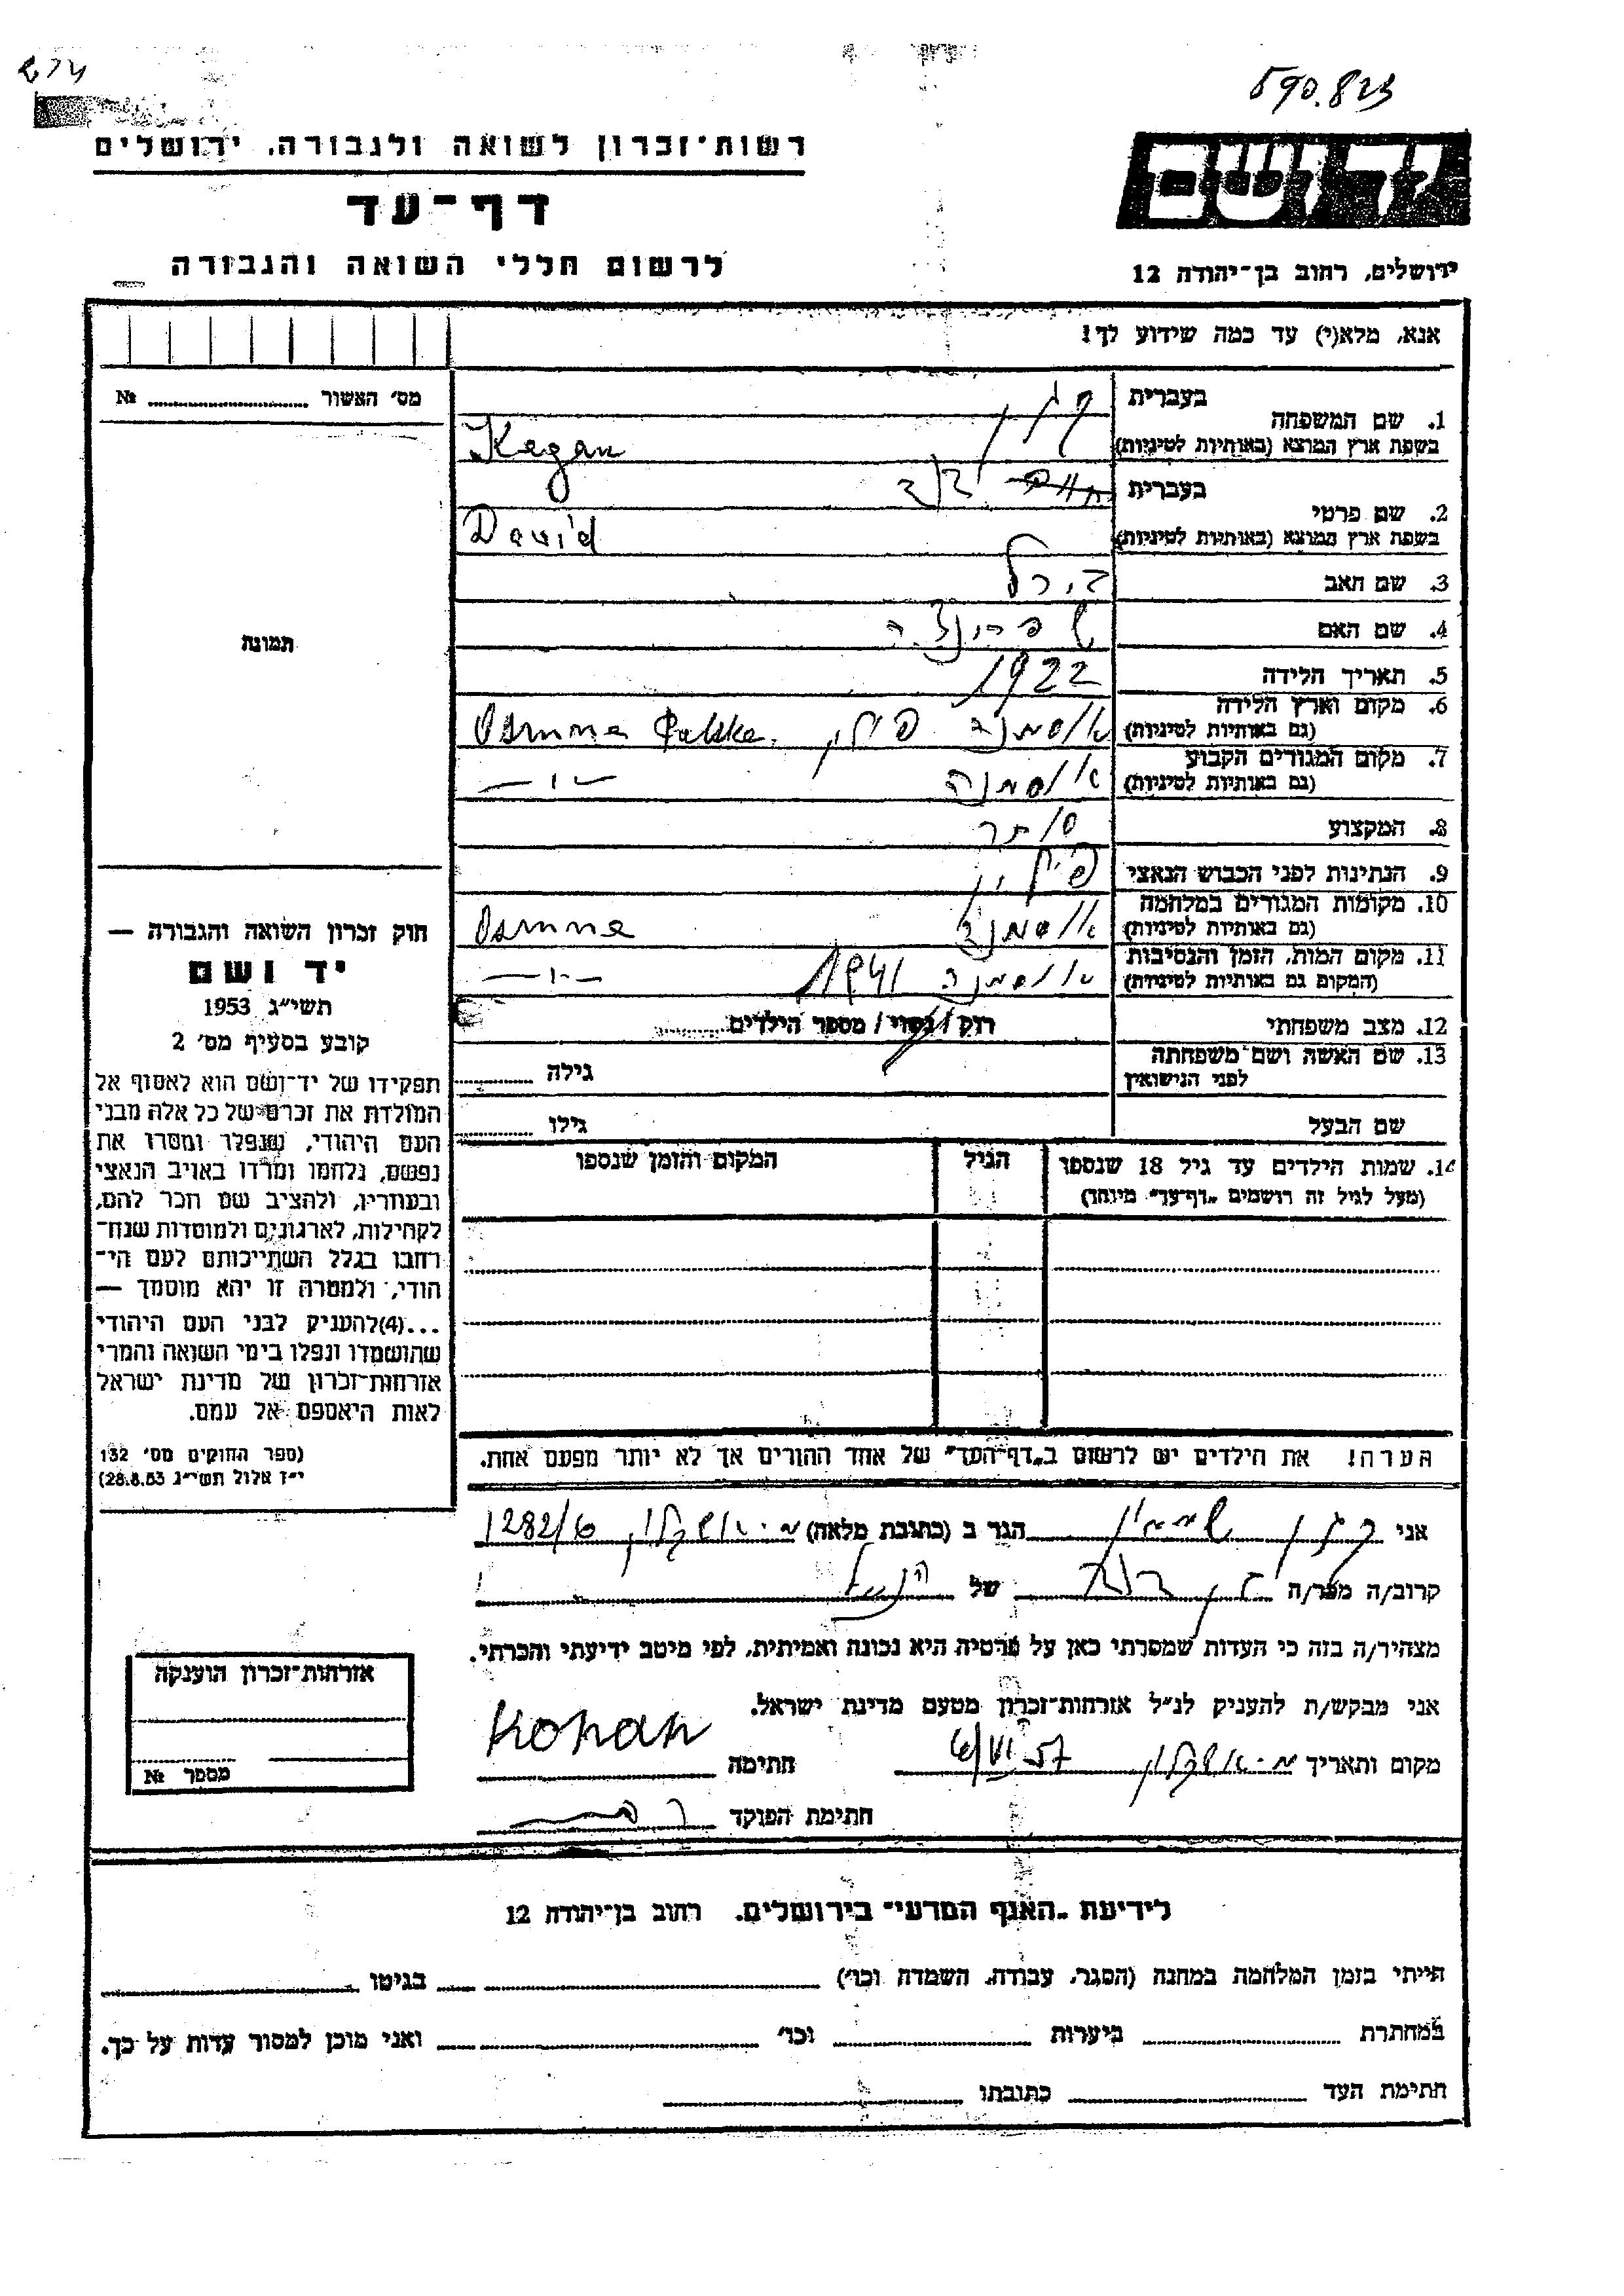 590.823
רשות־זכרון לשואה ולגבורה. ירושלים
דף־עד
לרשום חללי השואה והגבורה
ידושם
ירושלים, רחוב בן־יהודה 12
אנא, מלא(י) עד כמה שידוע לך!
מס׳ האשור № 
תמונה
1. שם המשפחה בעברית קגן
בשפת ארץ המוצא (באותיות לטיניות) Kagan
2. שם פרטי בעברית דוד
בשפת ארץ המוצא (באותיות לטיניות) David
3. שם האב
4. שם האם
5. תאריך הלידה 1922
6. מקום וארץ הלידה
(גם באותיות לטיניות) אוסמנה פולין. Osmena Polska
7. מקום המגורים הקבוע
(גם באותיות לטיניות) אוסמנה
8. המקצוע סוחר
9. הנתינות לפני הכבוש הנאצי פולין
10. מקומות המגורים במלחמה
(גם באותיות לטיניות) אוסמנה Osmena
11. מקום המות, הזמן והנסיבות
(המקום גם באותיות לטיניות) אוסמנה 1941
12. מצב משפחתי רוק / נשוי / מספר הילדים
13. שם האשה ושם משפחתה
לפני הנישואין גילה
שם הבעל גילו
14. שמות הילדים עד גיל 18 שנספו הגיל המקום והזמן שנספו
(מעל לגיל זה רושמים „דף־עד" מיוחד)
הערה! את הילדים יש לרשום ב„דף־העד" של אחד ההורים אך לא יותר מפעם אחת.
חוק זכרון השואה והגבורה —
יד ושם
תשי״ג 1953
קובע בסעיף מס׳ 2
תפקידו של יד־ושם הוא לאסוף אל
המולדת את זכרם של כל אלה מבני
העם היהודי, שנפלו ומסרו את
נפשם, נלחמו ומרדו באויב הנאצי
ובעוזריו, ולהציב שם וזכר להם,
לקהילות, לארגונים ולמוסדות שנח־
רחבו בגלל השתייכותם לעם הי־
הודי, ולמטרה זו יהא מוסמך —
...(4)להעניק לבני העם היהודי
שהושמדו ונפלו בימי השואה והמרי
אזרחות־זכרון של מדינת ישראל
לאות היאספם אל עמם.
(ספר החוקים מס׳ 132
י״ז אלול תשי״ג 28.8.53)
אני קגן הגר ב (כתובת מלאה) מ. אשקלון 1282/6
קרוב/ה מכר/ה בן דוד של הנ״ל
מצהיר/ה בזה כי העדות שמסרתי כאן על פרטיה היא נכונה ואמיתית, לפי מיטב ידיעתי והכרתי.
אני מבקש/ת להעניק לנ״ל אזרחות־זכרון מטעם מדינת ישראל.
מקום ותאריך מ. אשקלון 6/VI 57 חתימה Kohan
חתימת הפוקד
אזרחות־זכרון הוענקה
מספר №
לידיעת „האגף המדעי״ בירושלים. רחוב בן־יהודה 12
הייתי בזמן המלחמה במחנה (הסגר, עבודה, השמדה וכו׳) בגיטו
במחתרת ביערות וכו׳ ואני מוכן למסור עדות על כך.
חתימת העד כתובתו